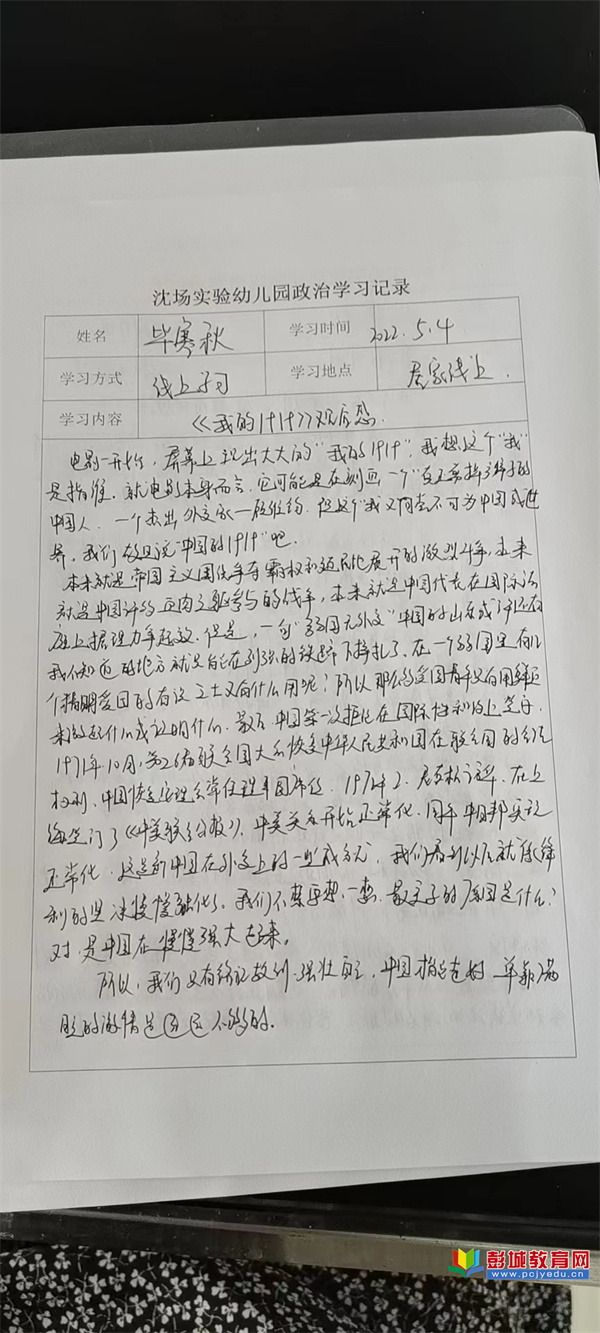 沈场实验幼儿园政治学习记录
姓名 毕寒秋 学习时间 2022.5.4
学习方式 线上学习 学习地点 居家线上.
学习内容 《我的1919》观后感.
电影一开始,屏幕上现出大大的“我的1919”,我想这个“我”
是指谁.就电影本身而言,它可能是在刻画一个
中国人.一个杰出外交家—顾维钧.但这个“我”又何尝不可为中国或世
界,我们姑且说“中国的1919”吧.
本来就是帝国主义国家争夺霸权和殖民地展开的激烈斗争,本来
就是中国 的战争,本来就是中国代表在国际法
庭上据理力争 但是,一句“弱国无外交”中国的山东或许还在
我不知道的地方就只能在列强的铁蹄下挣扎了.在一个弱国里有几
个精明爱国的有识之士又有什么用呢?所以那么的爱国青年只有用
来 什么或证明什么.最后中国第一次拒绝在国际性和约上签字.
1971年10月,第26届联合国大会恢复中华人民共和国在联合国的合法
权利,中国恢复安理会常任理事国席位.1972年2.尼克松访华,在上
海签订了《中美联合公报》,中美关系开始正常化.同年中日邦交
正常化.这是新中国在外交上的一些成就,我们看到以后就
利的 慢慢融化了.我们不禁要想一想,最主要的原因是什么?
对,是中国在慢慢强大起来.
所以,我们只有铭记教训,强壮自己,中国 单靠满
腔的激情是远远不够的.
彭城教育网
www.pcjyedu.cn